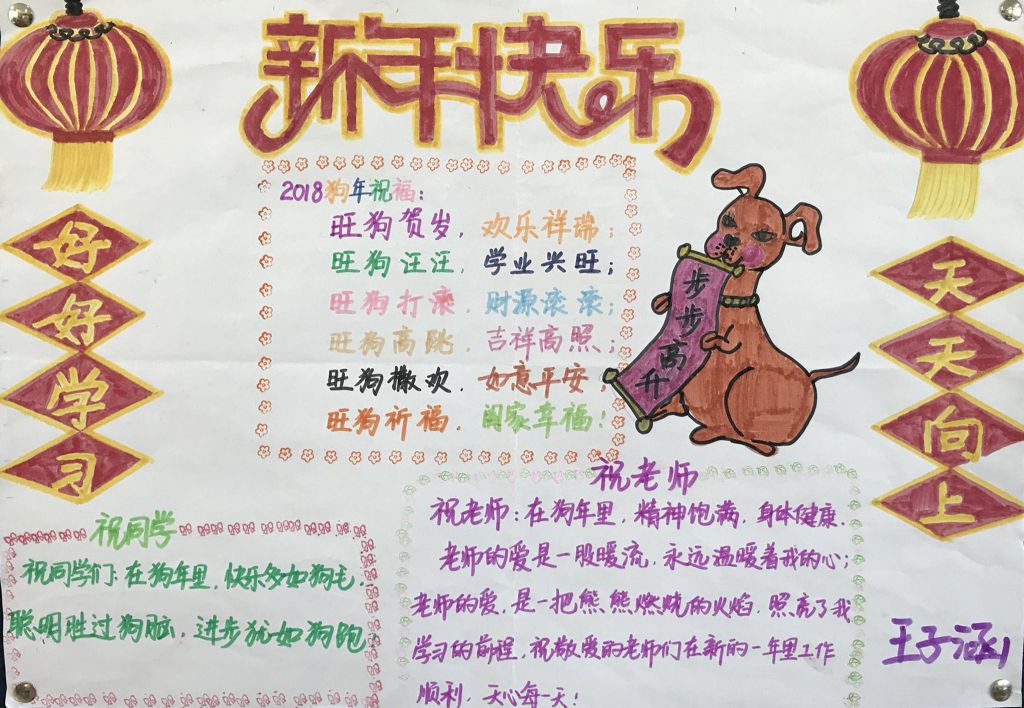 新年快乐
好好学习
2018狗年祝福：
旺狗贺岁，欢乐祥瑞；
旺狗汪汪，学业兴旺；
旺狗打滚，财源滚滚；
旺狗高跳，吉祥高照；
旺狗撒欢，如意平安！
旺狗祈福，阖家幸福！
步步高升
天天向上
祝同学
祝同学们：在狗年里，快乐多如狗毛，
聪明胜过狗脑，进步犹如狗跑，
祝老师
祝老师：在狗年里，精神饱满，身体健康．
老师的爱是一股暖流，永远温暖着我的心；
老师的爱，是一把熊熊燃烧的火焰，照亮了我
学习的前程，祝敬爱的老师们在新的一年里工作
顺利，开心每一天！
王子涵